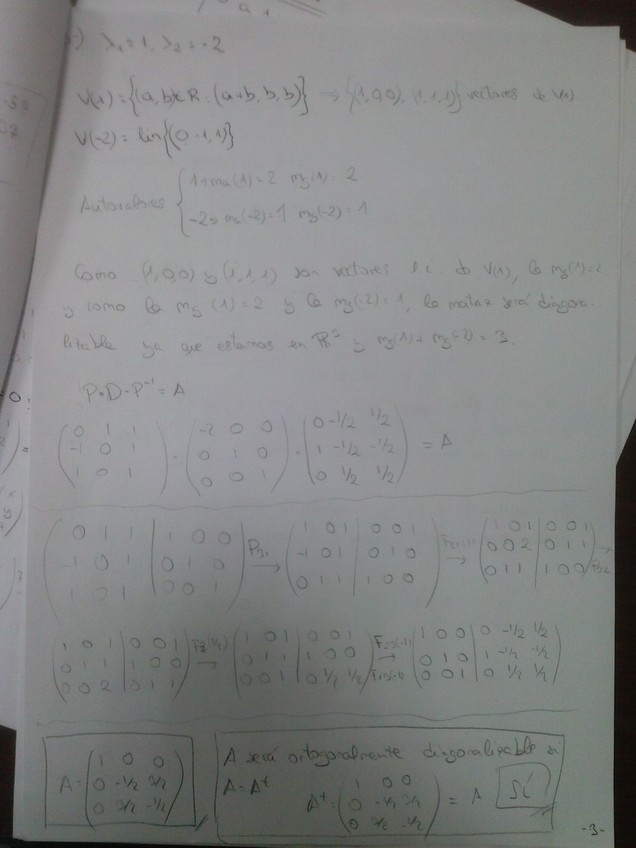 λ₁=1, λ₂=-2
V(1)={(a,b)∈R: (a+b, b, b)} ⇒ {(1,0,0), (1,1,1)} vectores de V(1)
V(-2) = lin{(0,-1,1)}
Autovalores { 1→ma(1)=2 mg(1)=2
-2→ma(-2)=1 mg(-2)=1
Como (1,0,0) y (1,1,1) son vectores l.i. de V(1), la mg(1)=2
y como la mg(1)=2 y la mg(-2)=1, la matriz será diagona-
lizable ya que estamos en R³ y mg(1)+mg(-2)=3.
P·D·P⁻¹=A
( 0 1 1 ) ( -2 0 0 ) ( 0 -1/2 1/2 )
( -1 0 1 ) · ( 0 1 0 ) · ( 1 -1/2 -1/2 ) = A
( 1 0 1 ) ( 0 0 1 ) ( 0 1/2 1/2 )
( 0 1 1 | 1 0 0 ) ( 1 0 1 | 0 0 1 ) ( 1 0 1 | 0 0 1 )
( -1 0 1 | 0 1 0 ) → ( -1 0 1 | 0 1 0 ) → ( 0 0 2 | 0 1 1 ) →
( 1 0 1 | 0 0 1 ) ( 0 1 1 | 1 0 0 ) ( 0 1 1 | 1 0 0 )
( 1 0 1 | 0 0 1 ) F3(1/2) ( 1 0 1 | 0 0 1 ) F23(-1) ( 1 0 0 | 0 -1/2 1/2 )
( 0 1 1 | 1 0 0 ) → ( 0 1 1 | 1 0 0 ) → ( 0 1 0 | 1 -1/2 -1/2 )
( 0 0 2 | 0 1 1 ) ( 0 0 1 | 0 1/2 1/2 ) F13(-1) ( 0 0 1 | 0 1/2 1/2 )
( 1 0 0 )
A= ( 0 -1/2 3/2 )
( 0 3/2 -1/2 )
A será ortogonalmente diagonalizable si
A=Aᵗ
( 1 0 0 )
Aᵗ= ( 0 -1/2 3/2 ) = A SÍ
( 0 3/2 -1/2 )
-3-